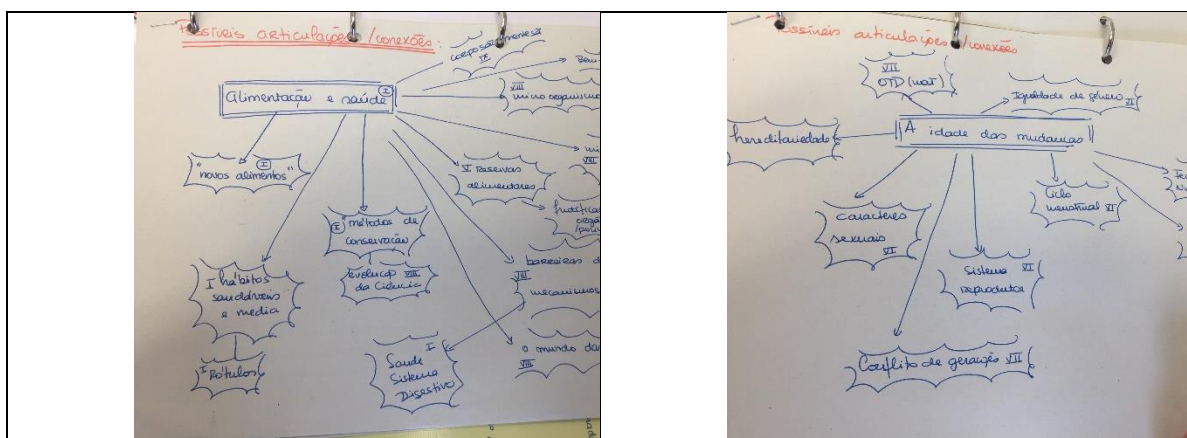 Possíveis articulações/conexões:
Alimentação e saúde I
IX
VIII
micro organismo
"novos alimentos" I
VI Reservas
alimentares
VIII
I "métodos de
conservação
evolução VIII
da Ciência
barreiras d
VIII
mecanismos
I hábitos
saudáveis
e media
I Rótulos
I
Saude
Sistema
Digestivo
o mundo da
VIII
Possíveis articulações/conexões
VII
OTD (mat)
Igualdade de género VI
hereditariedade
A idade das mudanças
caracteres
sexuais
VI
Ciclo
menstrual VI
Sistema VI
reprodutor
Conflito de gerações VII